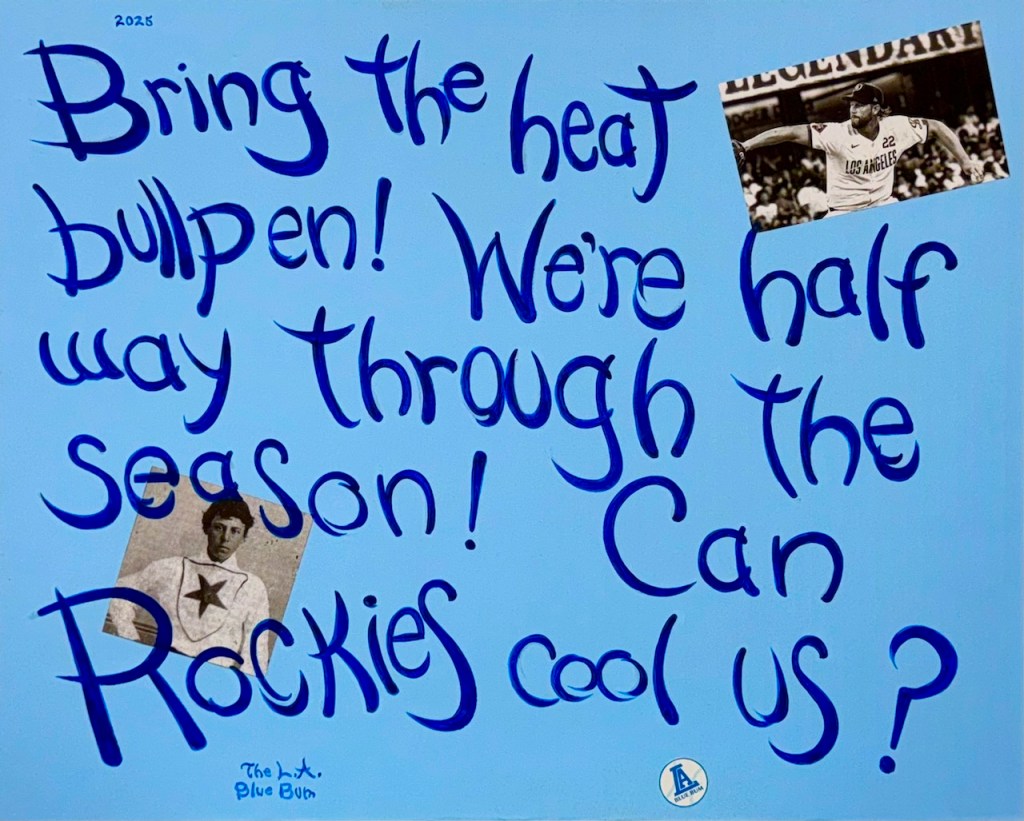 2025
Bring the heat
LEGENDARY
22
LOS ANGELES
bullpen! We're half
way through the
season! Can
Rockies cool us?
The L.A.
Blue Bum
LA
BLUE BUM